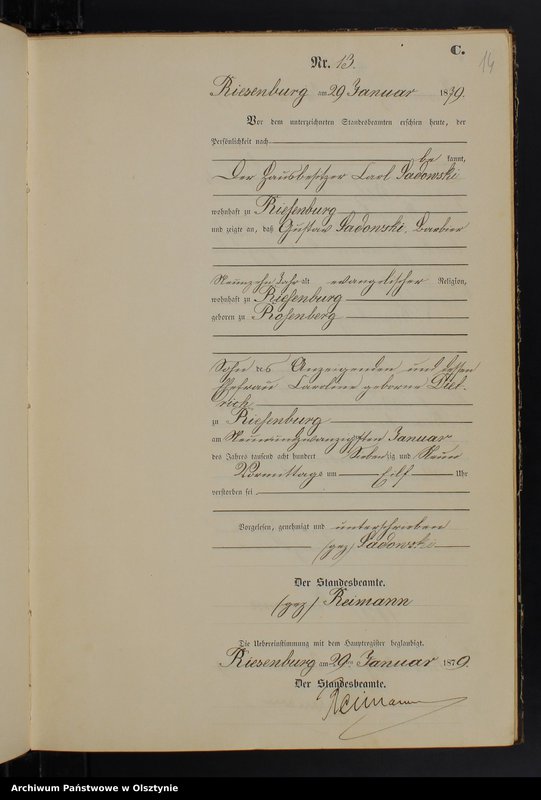 C.
14
Nr. 13.
Riesenburg am 29 Januar 1879.
Vor dem unterzeichneten Standesbeamten erschien heute, der
Persönlichkeit nach
be kannt,
Der Hausbesitzer Carl Sadowski
wohnhaft zu Riesenburg
und zeigte an, daß Gustav Sadowski, Barbier
Neunzehn Jahr alt evangelischer Religion,
wohnhaft zu Riesenburg
geboren zu Rosenberg
Sohn des Anzeigenden und dessen
Ehefrau Caroline geborne Diet-
rich
zu Riesenburg
am Neunundzwanzigsten Januar
des Jahres tausend acht hundert Siebenzig und Neun
Vormittags um Eilf Uhr
verstorben sei
Vorgelesen, genehmigt und unterschrieben
(gez) Sadowski
Der Standesbeamte.
(gez) Reimann
Die Uebereinstimmung mit dem Hauptregister beglaubigt.
Riesenburg am 29 Januar 1879.
Der Standesbeamte.
Reimann
Archiwum Państwowe w Olsztynie